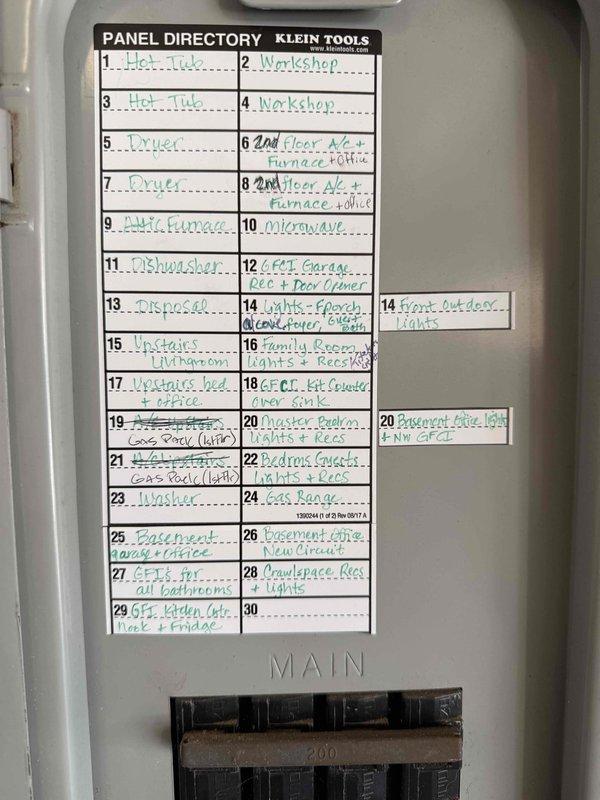 PANEL DIRECTORY KLEIN TOOLS
www.kleintools.com
1 Hot Tub
2 Workshop
3 Hot Tub
4 Workshop
5 Dryer
6 2nd Floor A/c +
Furnace + Office
7 Dryer
8 2nd floor A/c +
Furnace + office
9 Attic Furnace
10 microwave
11 Dishwasher
12 GFCI Garage
Rec + Door Opener
13 Disposal
14 Lights - Fporch
alcove, foyer, Guest
Bath
14 Front Outdoor
Lights
15 Upstairs
Livingroom
16 Family Room
lights + Recs
17 Upstairs bed
+ office
18 GFCI Kit Counter
over sink
19 A/C Upstairs
GAS PACK (1st Flr)
20 Master Bedrm
lights + Recs
20 Basement Office lights
+ NW GFCI
21 A/C Upstairs
GAS PACK (1st Flr)
22 Bedrms Guests
Lights + Recs
23 Washer
24 Gas Range
1390244 (1 of 2) Rev 08/17 A
25 Basement
garage + Office
26 Basement Office
New Circuit
27 GFI's for
all bathrooms
28 Crawlspace Recs
+ Lights
29 GFI Kitchen Cntr
Nook + Fridge
30
MAIN
200